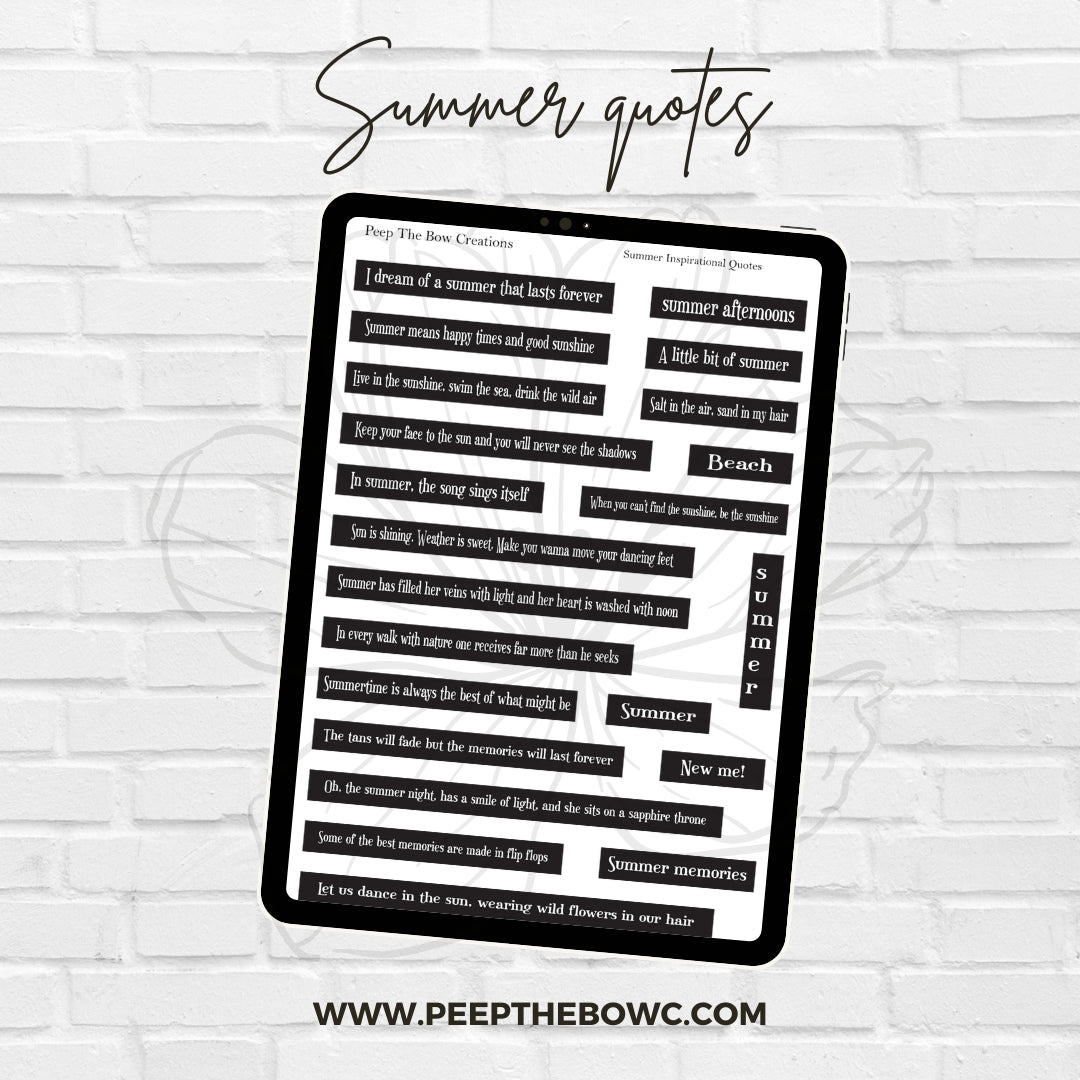 Summer quotes
Peep The Bow Creations
Summer Inspirational Quotes
I dream of a summer that lasts forever
summer afternoons
Summer means happy times and good sunshine
A little bit of summer
Live in the sunshine, swim the sea, drink the wild air
Salt in the air, sand in my hair
Keep your face to the sun and you will never see the shadows
Beach
In summer, the song sings itself
When you can't find the sunshine, be the sunshine
Sun is shining. Weather is sweet. Make you wanna move your dancing feet
summer
Summer has filled her veins with light and her heart is washed with noon
In every walk with nature one receives far more than he seeks
Summertime is always the best of what might be
Summer
The tans will fade but the memories will last forever
New me!
Oh, the summer night, has a smile of light, and she sits on a sapphire throne
Some of the best memories are made in flip flops
Summer memories
Let us dance in the sun, wearing wild flowers in our hair
WWW.PEEPTHEBOWC.COM